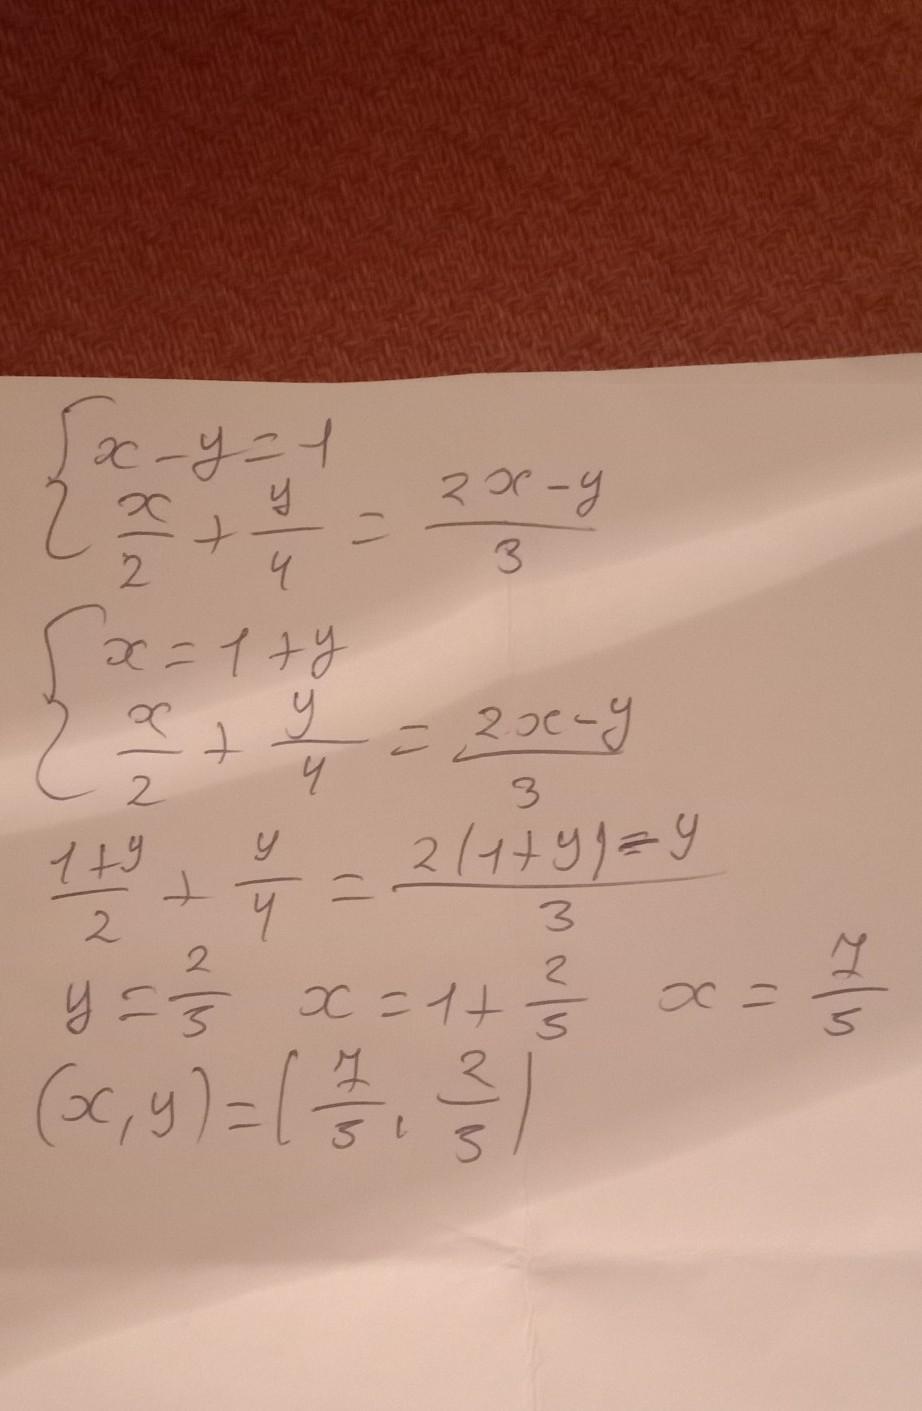 { x - y = 1
x/2 + y/4 = (2x - y)/3
{ x = 1 + y
x/2 + y/4 = (2x - y)/3
(1 + y)/2 + y/4 = (2(1 + y) - y)/3
y = 2/5 x = 1 + 2/5 x = 7/5
(x, y) = (7/5, 2/5)